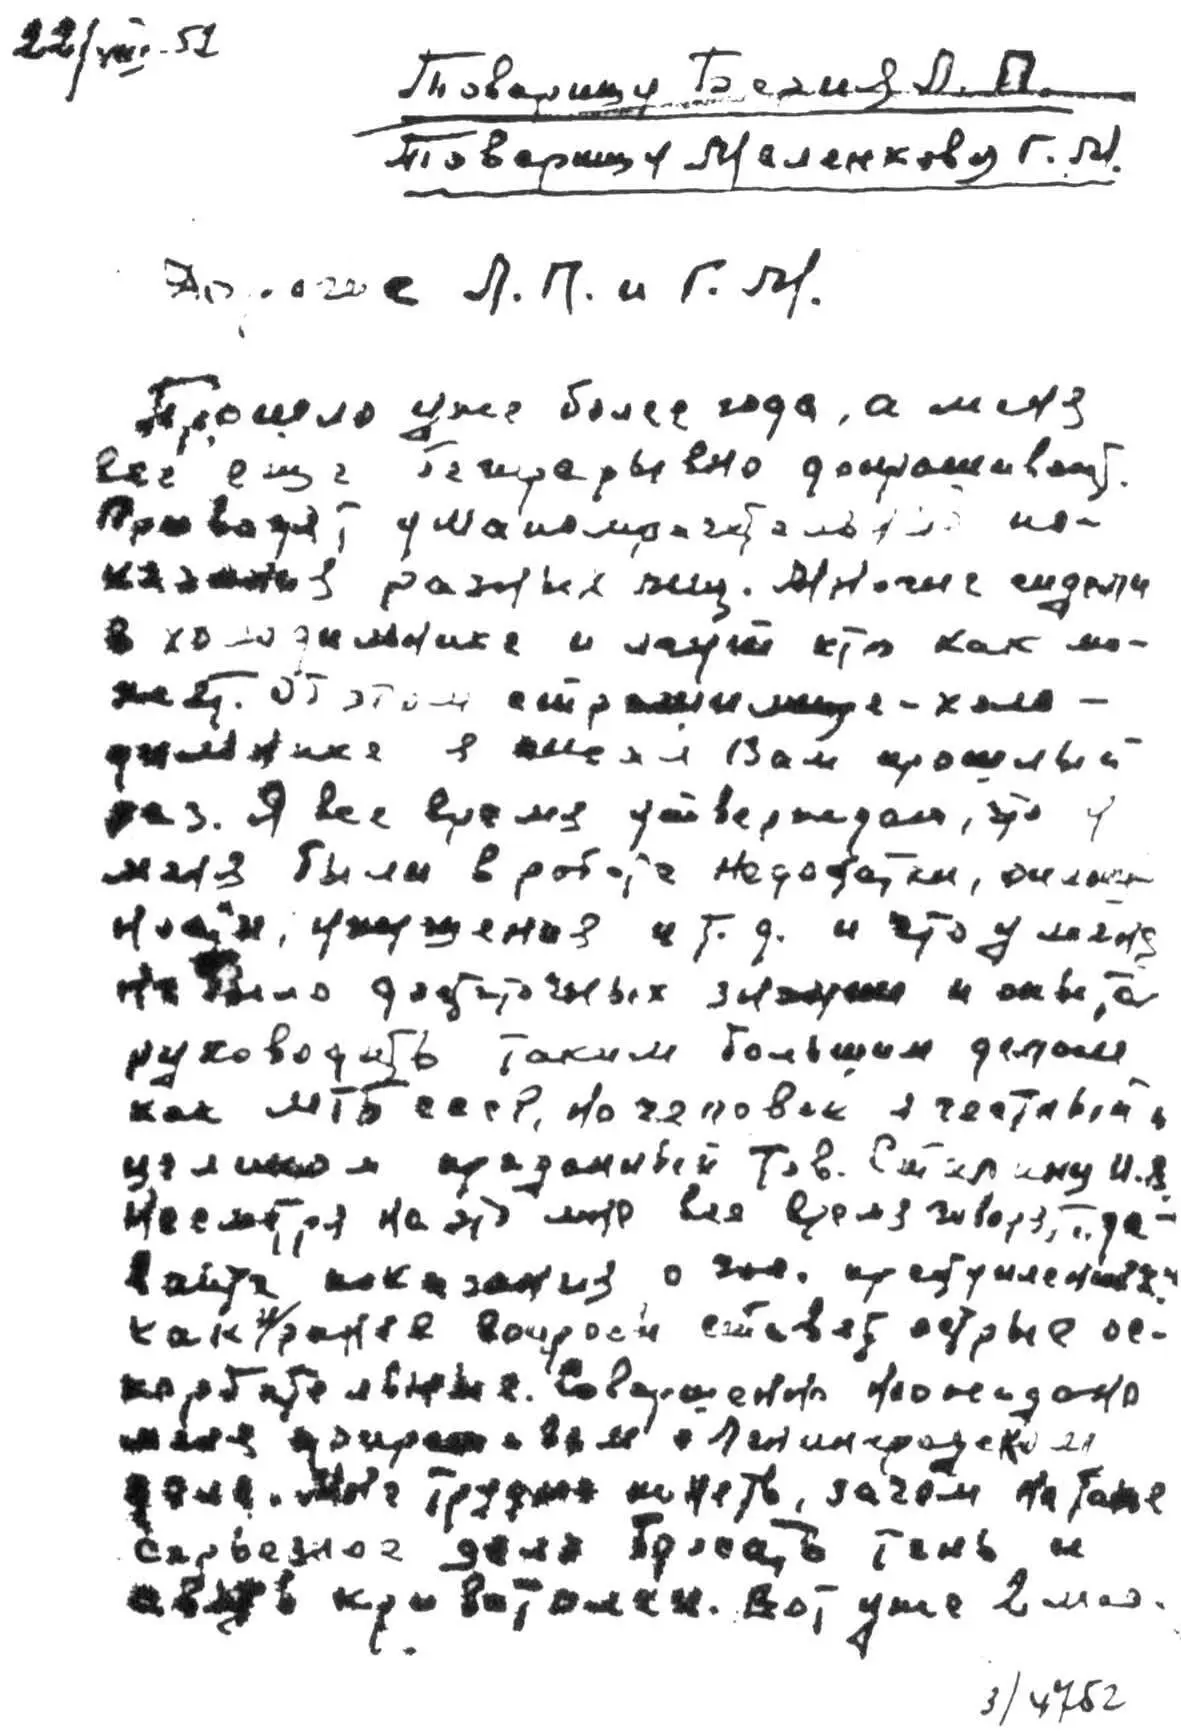 22/VIII-51
Товарищу Берия Л.П.
Товарищу Маленкову Г.М.
Дорогие Л.П. и Г.М.
Прошло уже более года, а меня
все еще беспрерывно допрашивают.
Приводят умапомрачительные по-
казания разных лиц. Многие сидели
в холодильнике и лгут кто как мо-
жет. Об этом страшилище-холо-
дильнике я писал Вам прошлый
раз. Я все время утверждаю, что у
меня были в работе недостатки,
и т.д. и что у меня
не было достаточных знаний и опыта
руководить таким большим делом
как МГБ СССР, но человек я честный и
целиком преданный Тов. Сталину И.В.
Несмотря на это мне все время говорят, да-
вайте показания о преступлениях.
Как и ранее вопросы ставят острые ос-
корбительные. Совершенно неожиданно
меня о Ленинградском
деле. Мне трудно понять, зачем на такое
серьезное дело бросать тень и
кривотолки. Вот уже 2 мес.
3/4752